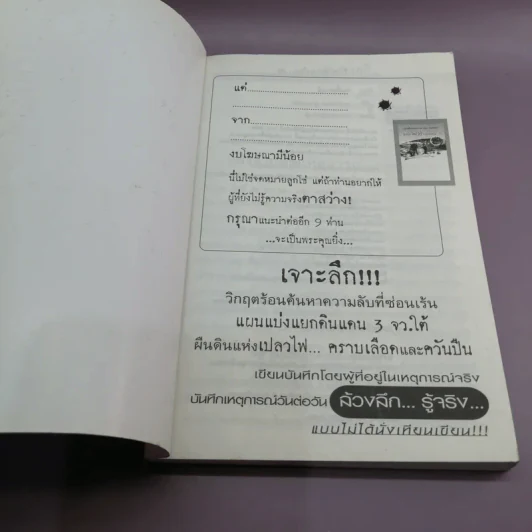 แด่..............................
..............................
จาก..............................
..............................
งบโฆษณามีน้อย
นี่ไม่ใช่จดหมายลูกโซ่ แต่ถ้าท่านอยากให้
ผู้ที่ยังไม่รู้ความจริงตาสว่าง!
กรุณาแนะนำต่ออีก 9 ท่าน
...จะเป็นพระคุณยิ่ง...
เจาะลึก!!!
วิกฤตร้อนค้นหาความลับที่ซ่อนเร้น
แผนแบ่งแยกดินแดน 3 จว.ใต้
ผืนดินแห่งเปลวไฟ... คราบเลือดและควันปืน
เขียนบันทึกโดยผู้ที่อยู่ในเหตุการณ์จริง
บันทึกเหตุการณ์วันต่อวัน ล้วงลึก... รู้จริง...
แบบไม่ได้นั่งเทียนเขียน!!!